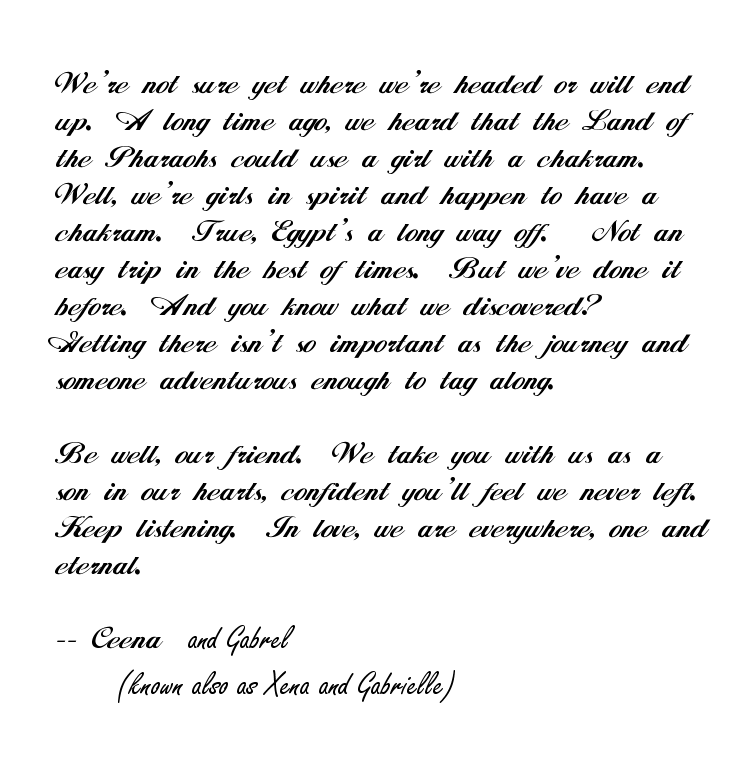 We're not sure yet where we're headed or will end
up. A long time ago, we heard that the Land of
the Pharaohs could use a girl with a chakram.
Well, we're girls in spirit and happen to have a
chakram. True, Egypt's a long way off. Not an
easy trip in the best of times. But we've done it
before. And you know what we discovered?
Getting there isn't so important as the journey and
someone adventurous enough to tag along.

Be well, our friend. We take you with us as a
son in our hearts, confident you'll feel we never left.
Keep listening. In love, we are everywhere, one and
eternal.

-- Ceena and Gabrel
(known also as Xena and Gabrielle)